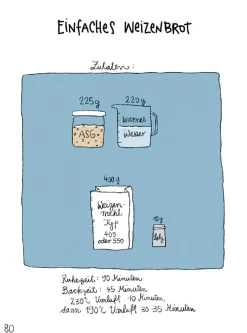 EINFACHES WEIZENBROT
Zutaten:
225g
220g
ASG
Warmes
Wasser
400g
Weizen-
mehl
Typ
405
oder 550
10g
Salz
Ruhezeit: 90 Minuten
Backzeit: 45 Minuten
230°C Umluft 10 Minuten,
dann 190°C Umluft 30-35 Minuten
80